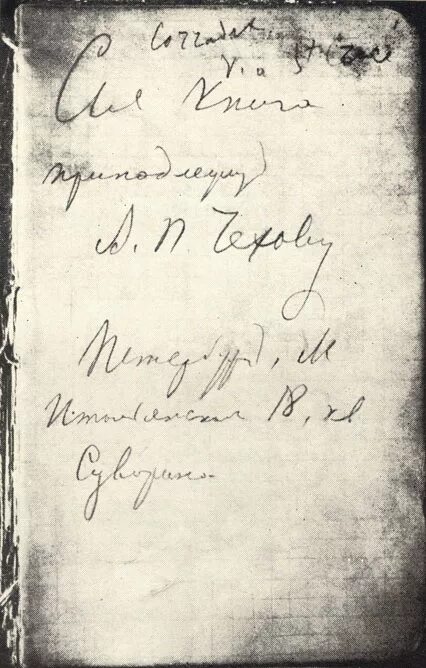 Corradel
Via
Сия книга
принадлежит
А. П. Чехову
Петербург, М
Итальянская 18, кв
Суворина